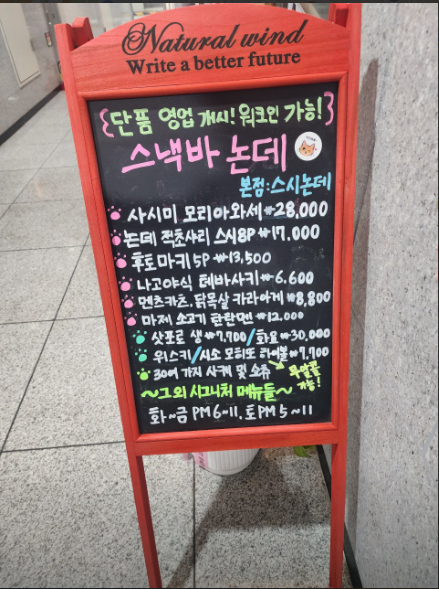 Natural wind
Write a better future
{단품 영업 개시! 워크인 가능!}
스낵바 논데
본점:스시논데
사시미 모리아와세 ₩28,000
논데 적초샤리 스시 8P ₩17.000
후토마키 5P ₩13,500
나고야식 테바사키 ₩6.600
멘츠카츠, 닭목살 카라아게 ₩8,800
마제 소고기 탄탄멘 ₩12.000
삿포로 생 ₩7,700/화요 ₩30,000
위스키/시소 모히또 하이볼 ₩7,700
30여 가지 사케 및 소츄 무알콜 가능!
~그외 시그니처 메뉴들~
화~금 PM 6~11. 토 PM 5~11